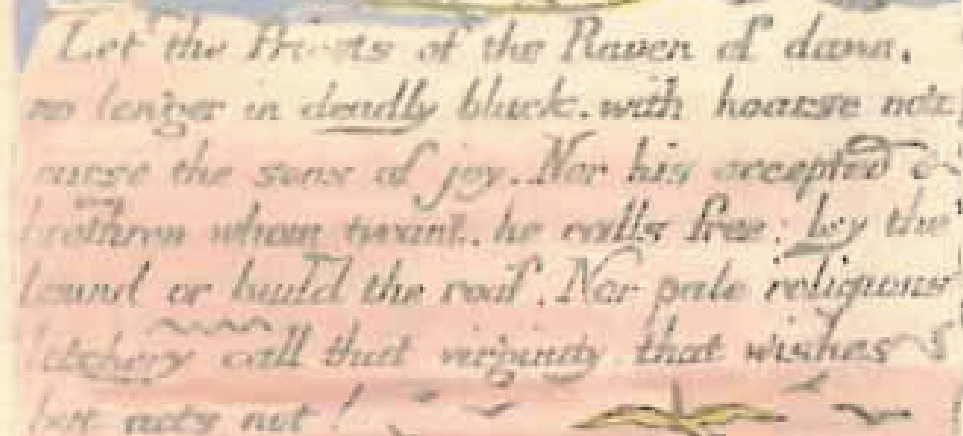 Let the Priests of the Raven of dawn,
no longer in deadly black, with hoarse note
curse the sons of joy. Nor his accepted
brethren whom, tyrant, he calls free: lay the
bound or build the roof. Nor pale religious
letchery call that virginity that wishes
but acts not!